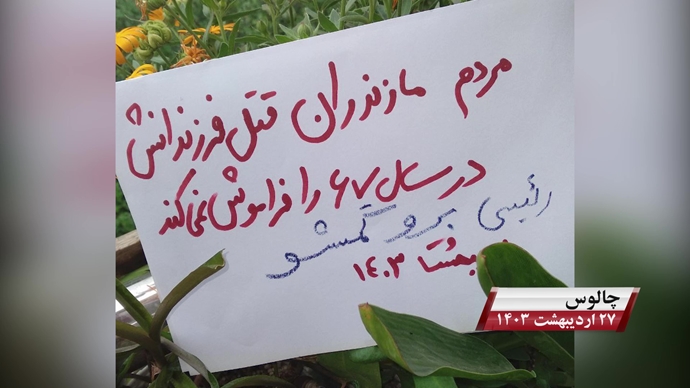 مردم مازندران قتل فرزندانش
در سال ۶۷ را فراموش نمی کند
رئیسی برو گمشو
۱۴۰۳
چالوس
۲۷ اردیبهشت ۱۴۰۳